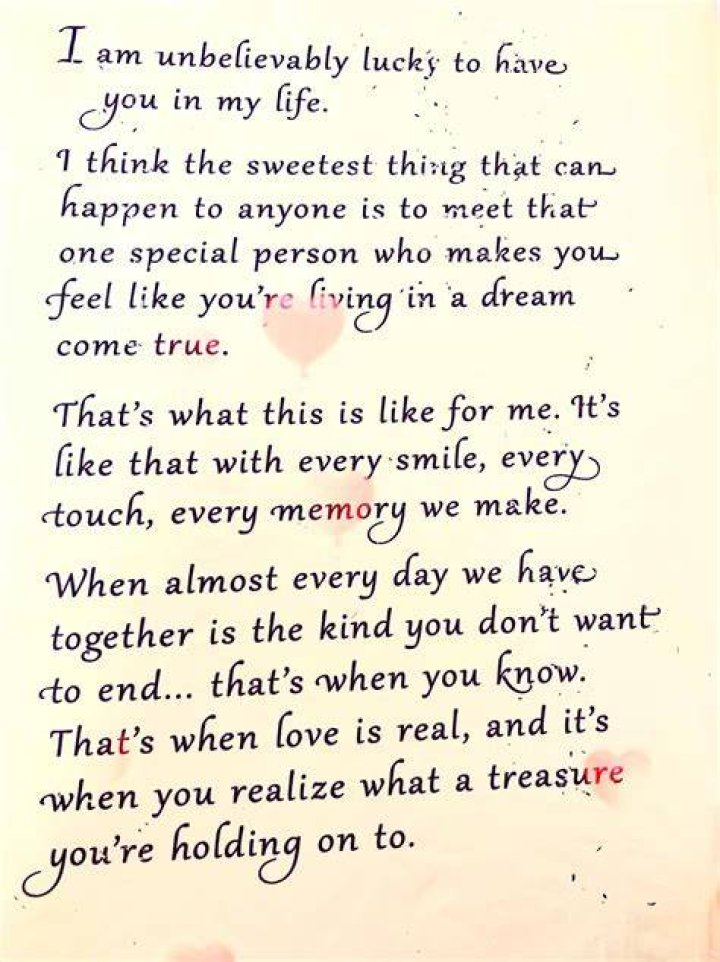 I am unbelievably lucky to have
you in my life.
I think the sweetest thing that can
happen to anyone is to meet that
one special person who makes you
feel like you're living in a dream
come true.
That's what this is like for me. It's
like that with every smile, every
touch, every memory we make.
When almost every day we have
together is the kind you don't want
to end... that's when you know.
That's when love is real, and it's
when you realize what a treasure
you're holding on to.